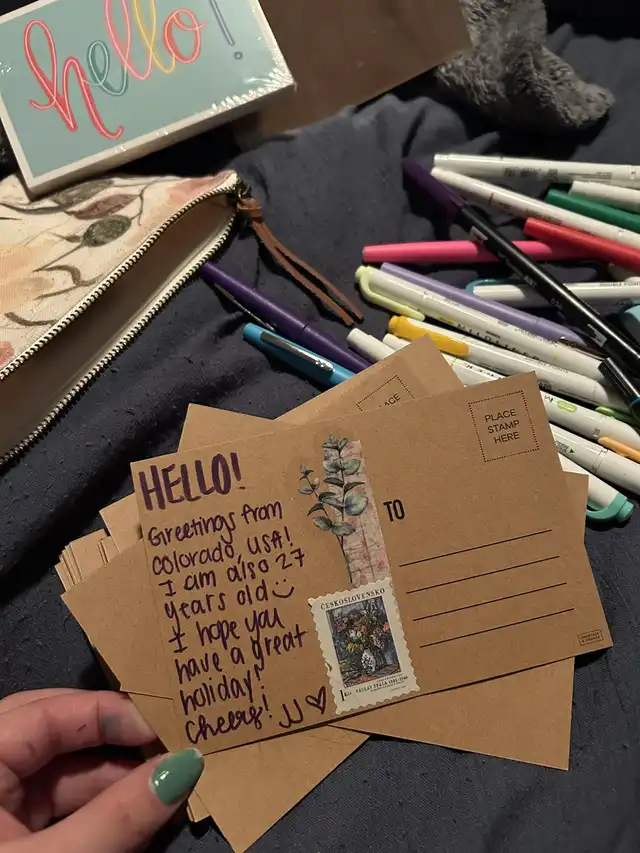 hello!
PLACE
PLACE
STAMP
HERE
HELLO!
Greetings from
Colorado, USA!
I am also 27
years old
I hope you
have a great
holiday!
Cheers! JJ
TO
ČESKOSLOVENSKO
1 Kčs